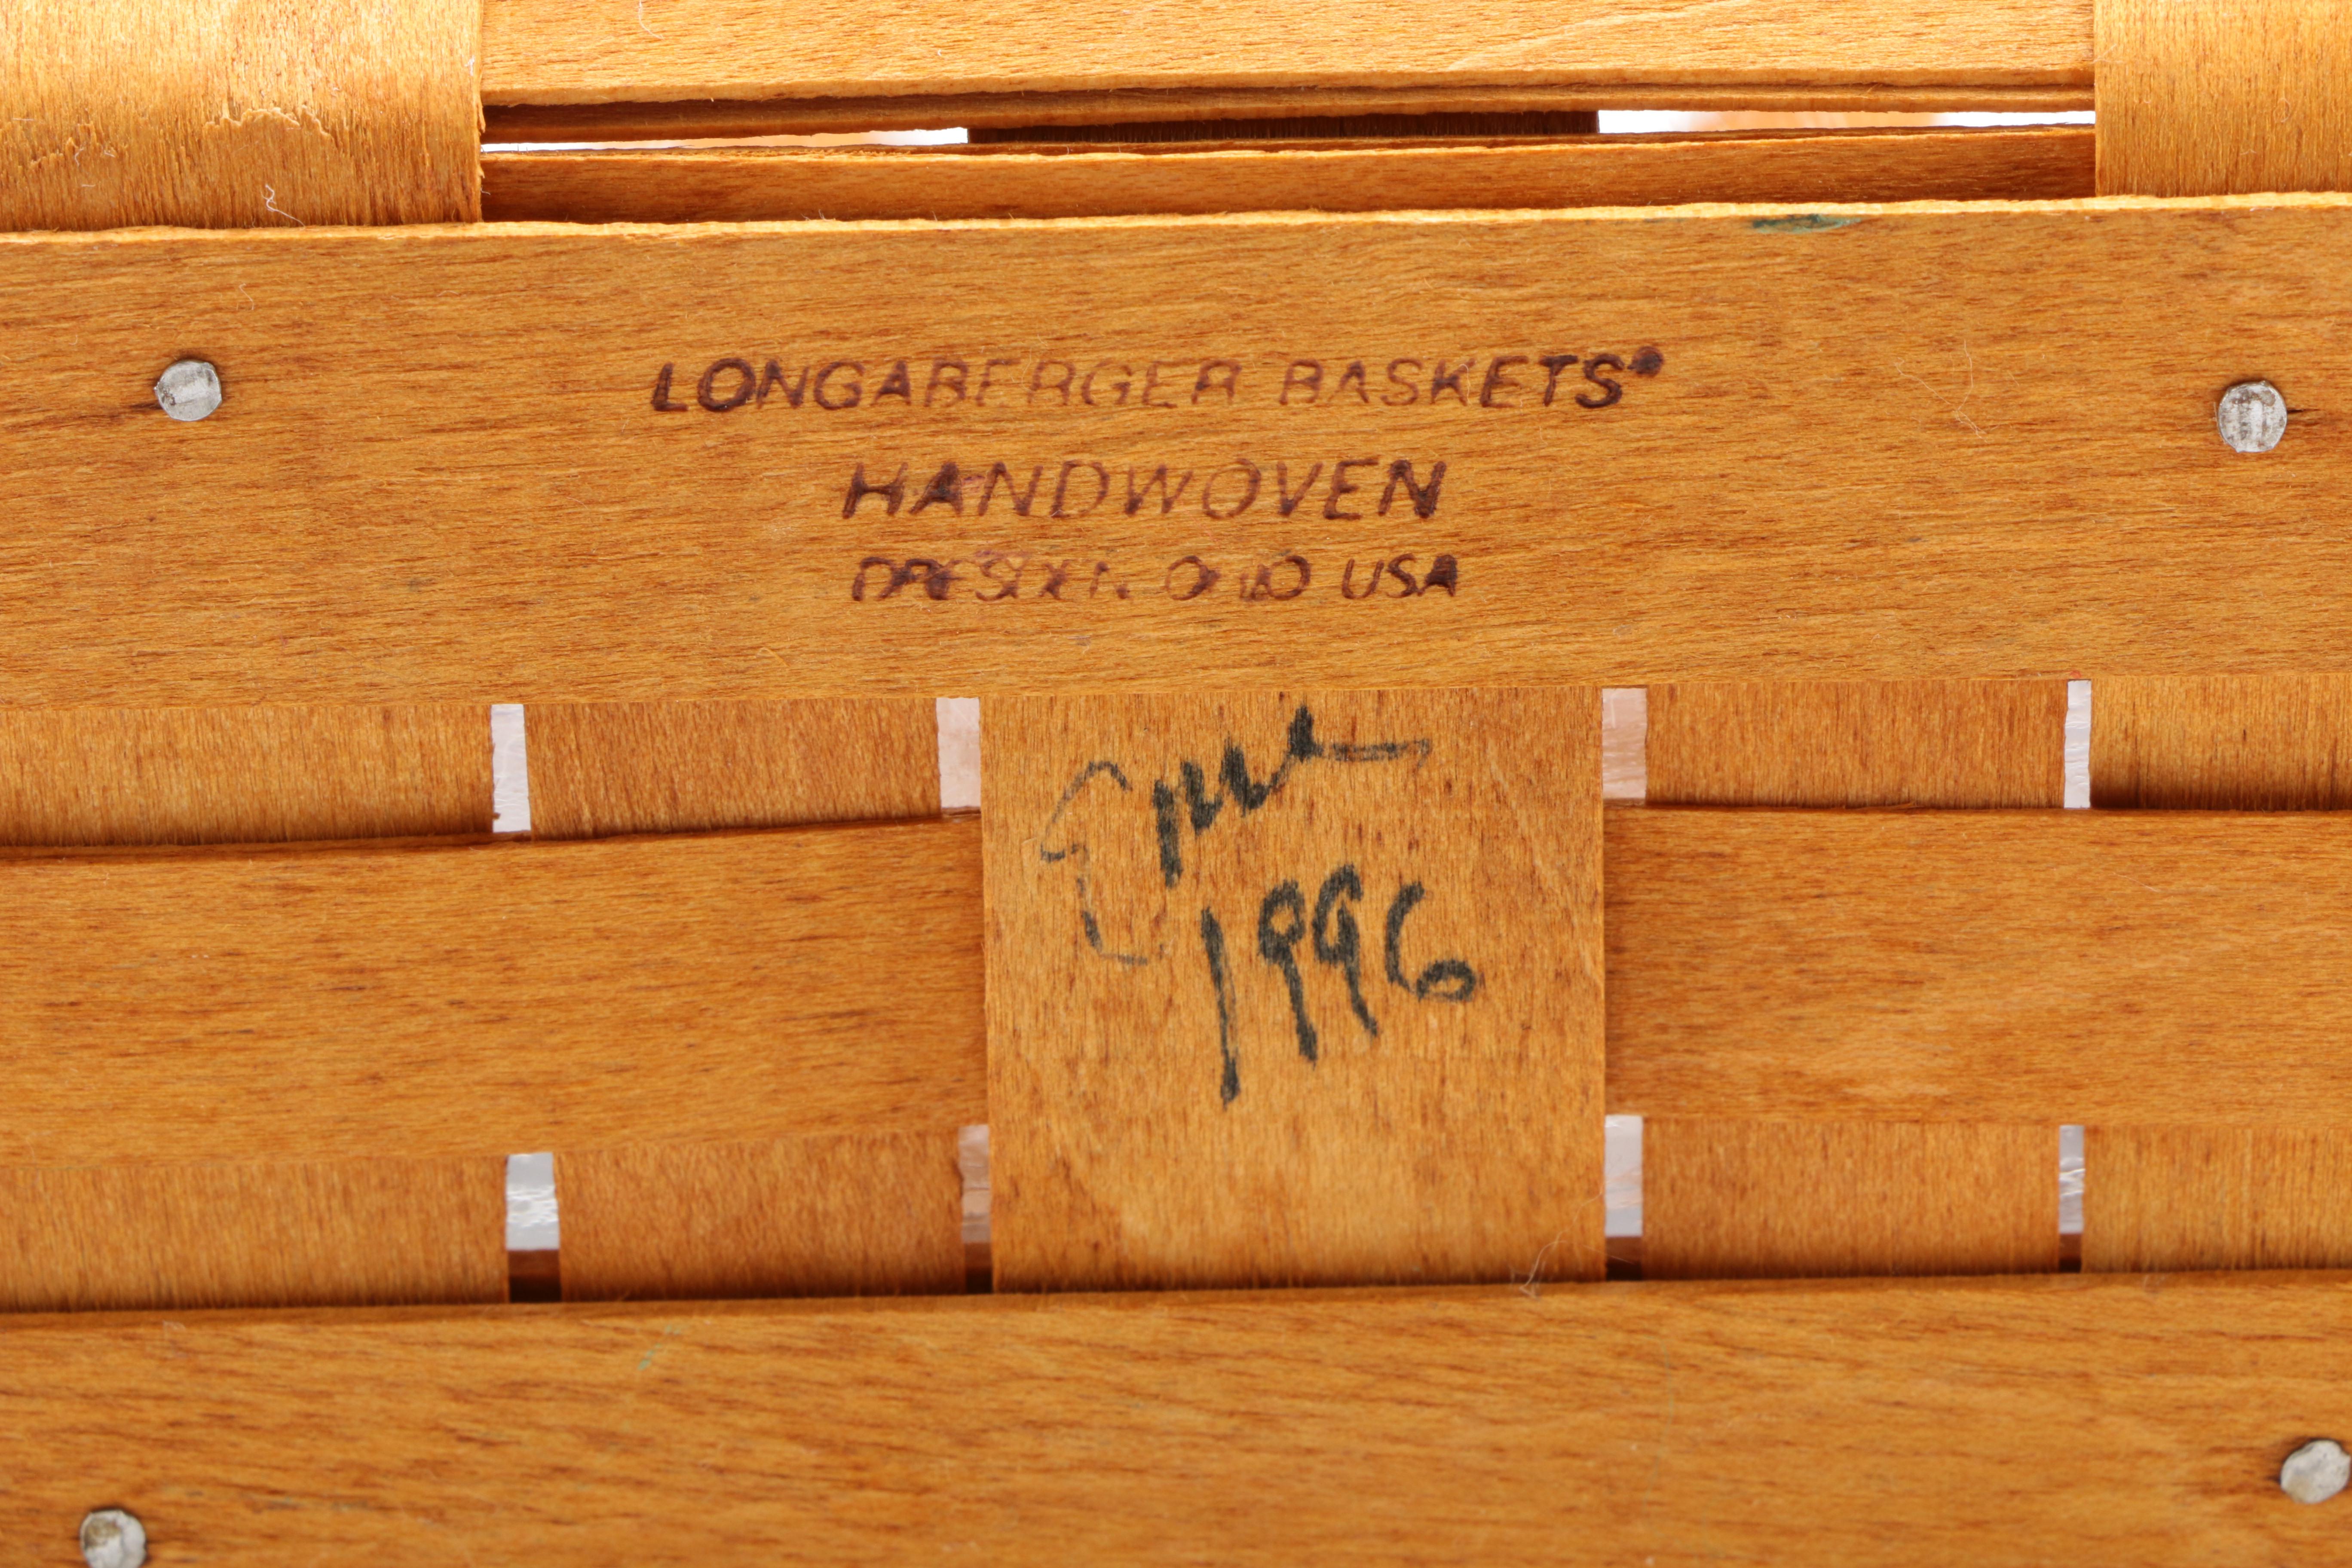 LONGABERGER BASKETS®
HANDWOVEN
DRESDEN, OHIO USA
1996